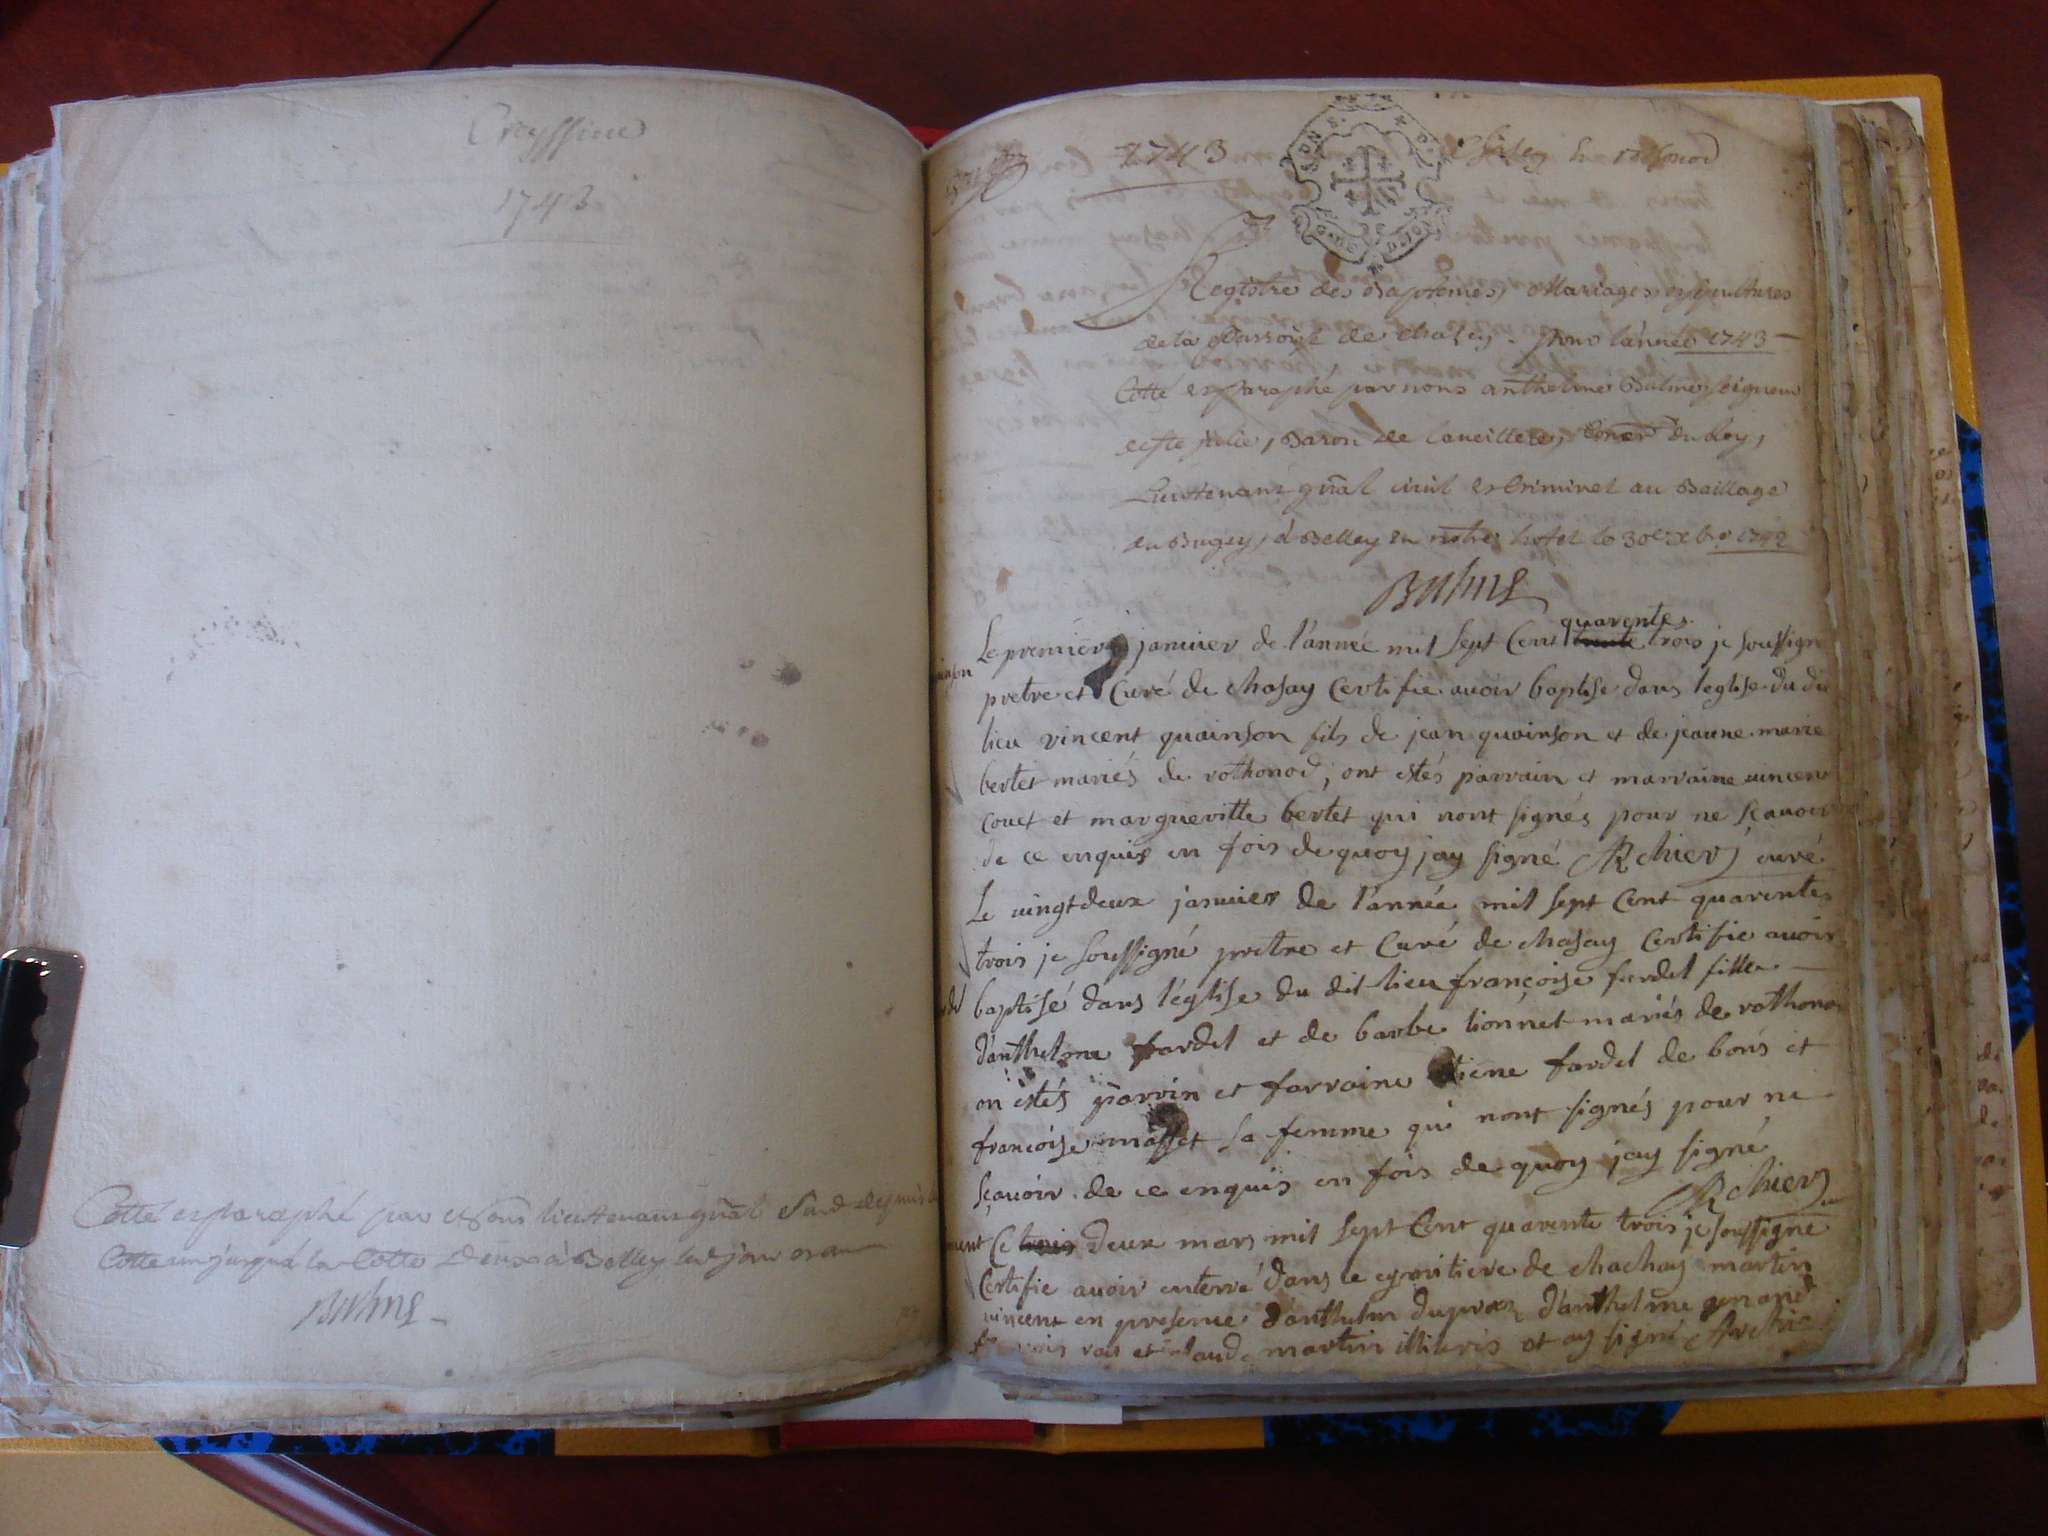 Creyssieu
1743
Cotté et paraphé par nous lieutenant gñal susd depuis la
Cotte une jusqu'a la Cotte Deux à Belley led jour et an
Balme
1743
Chasey
Registre des Baptemes, Mariages et sepultures
de la Parroisse de Chazey. Pour l'année 1743
Cotté et Paraphé par nous anthelme Balme, seigneur
de ste julie, Baron de Coner du Roy,
Lieutenant gñal civil et Criminel au Baillage
du Bugey, à Belley en notre hotel le 30e xbre 1742
Balme
quarentes
Le premier janvier de l'année mil sept Cent trente trois je soussigné
pretre et Curé de chasay Certifie avoir baptise dans leglise du dit
lieu vincent quainson fils de jean quainson et de jeanne marie
bertet mariés de rothonod, ont estés parrain et marraine vincent
couet et margueritte bertet qui nont signés pour ne sçavoir
de ce enquis en fois de quoy jay signé Rchier curé
Le vingtdeux janvier de l'année mil sept Cent quarentes
trois je soussigné pretre et Curé de chasay Certifie avoir
baptisé dans l'église du dit lieu françoise fardel fille
d'anthelme fardel et de barbe lionnet mariés de rothonod
on estés parvin et farraine etiene fardel de bons et
francoise masset sa femme qui nont signés pour ne
sçavoir de ce enquis en fois de quoy jay signé
Rchier
Ce trois Deux mars mil sept Cent quarente trois je soussigne
Certifie avoir enterré dans le cymitiere de chachay martin
vincent en presence d'anthelm dupraz d'anthelme genand
et claude martin illiteris et ay signé